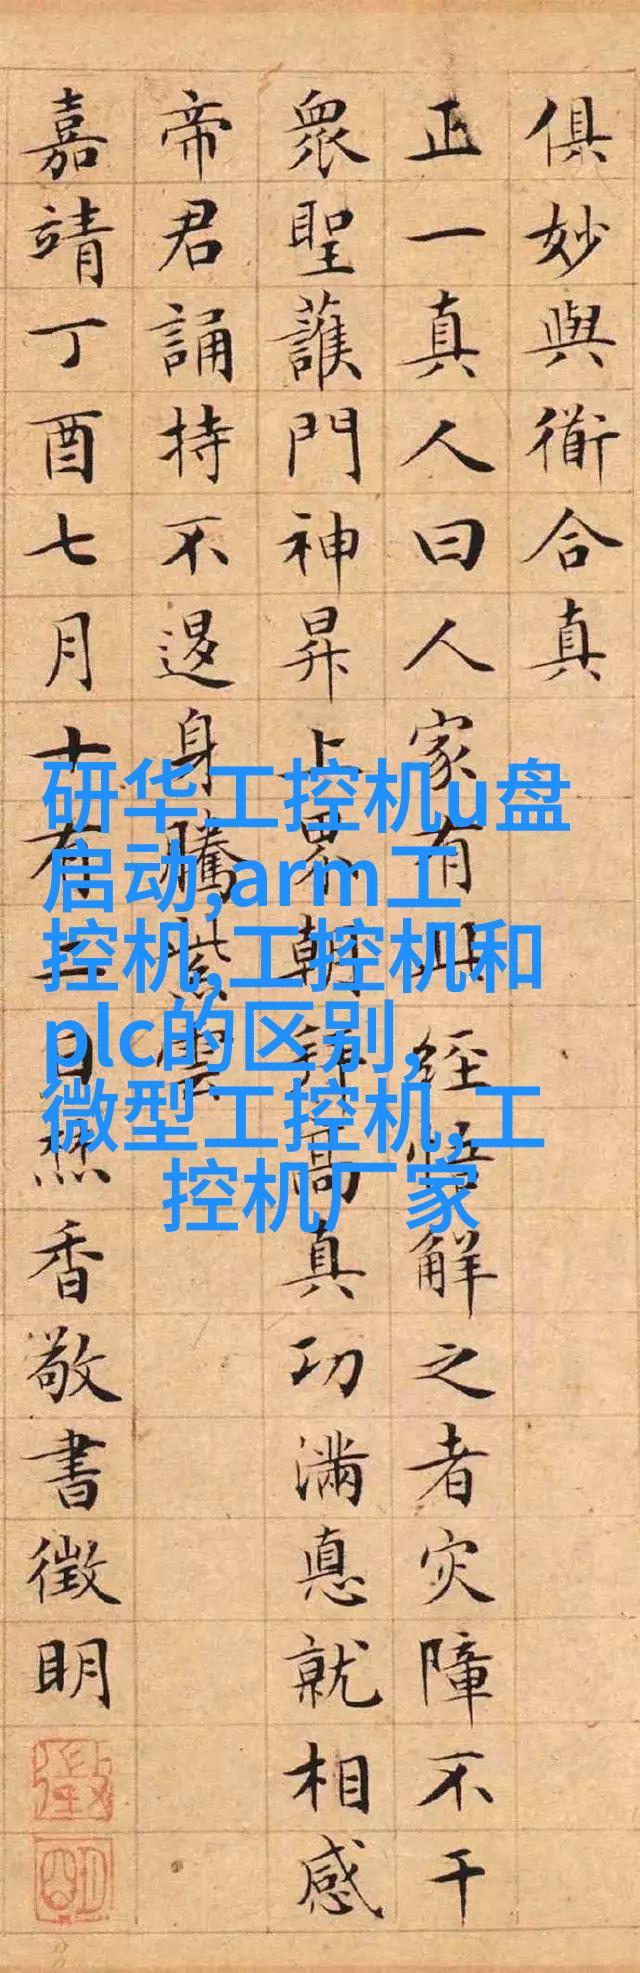 俱妙與衜合真
正一真人曰人家有此經悟解之者灾障不干
衆聖護門神昇上界朝拜高真功滿悳就相感
帝君誦持不退身騰紫雲
嘉靖丁酉七月十有日焚香敬書徵明
徵
明
研华工控机u盘
启动,arm工
控机,工控机和
plc的区别,
微型工控机,工
控机厂家